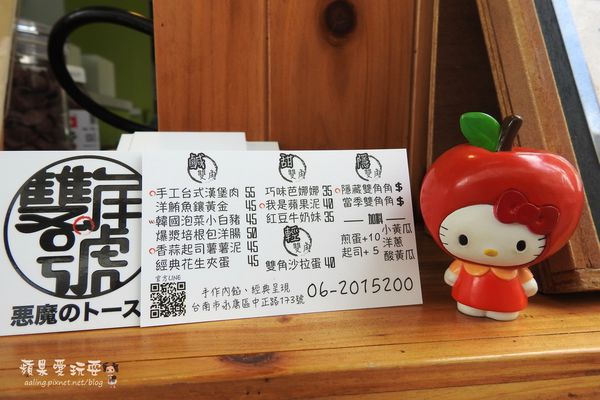 雙角號
悪魔のトース
鹹
雙角
手工台式漢堡肉 55
洋鮪魚鑲黃金 45
韓國泡菜小白豬 45
爆漿培根包洋腸 50
香蒜起司薯薯泥 45
經典花生夾蛋 45
官方LINE
甜
雙角
巧味芭娜娜 35
我是蘋果泥 40
紅豆牛奶妹 35
輕
雙角
雙角沙拉蛋 40
隱
雙角
隱藏雙角角 $
當季雙角角 $
加料
煎蛋+10
起司+ 5
小黃瓜
洋蔥
酸黃瓜
手作內餡、經典呈現
台南市永康區中正路173號
06-2015200
蘋果愛玩耍
aaling.pixnet.net/blog